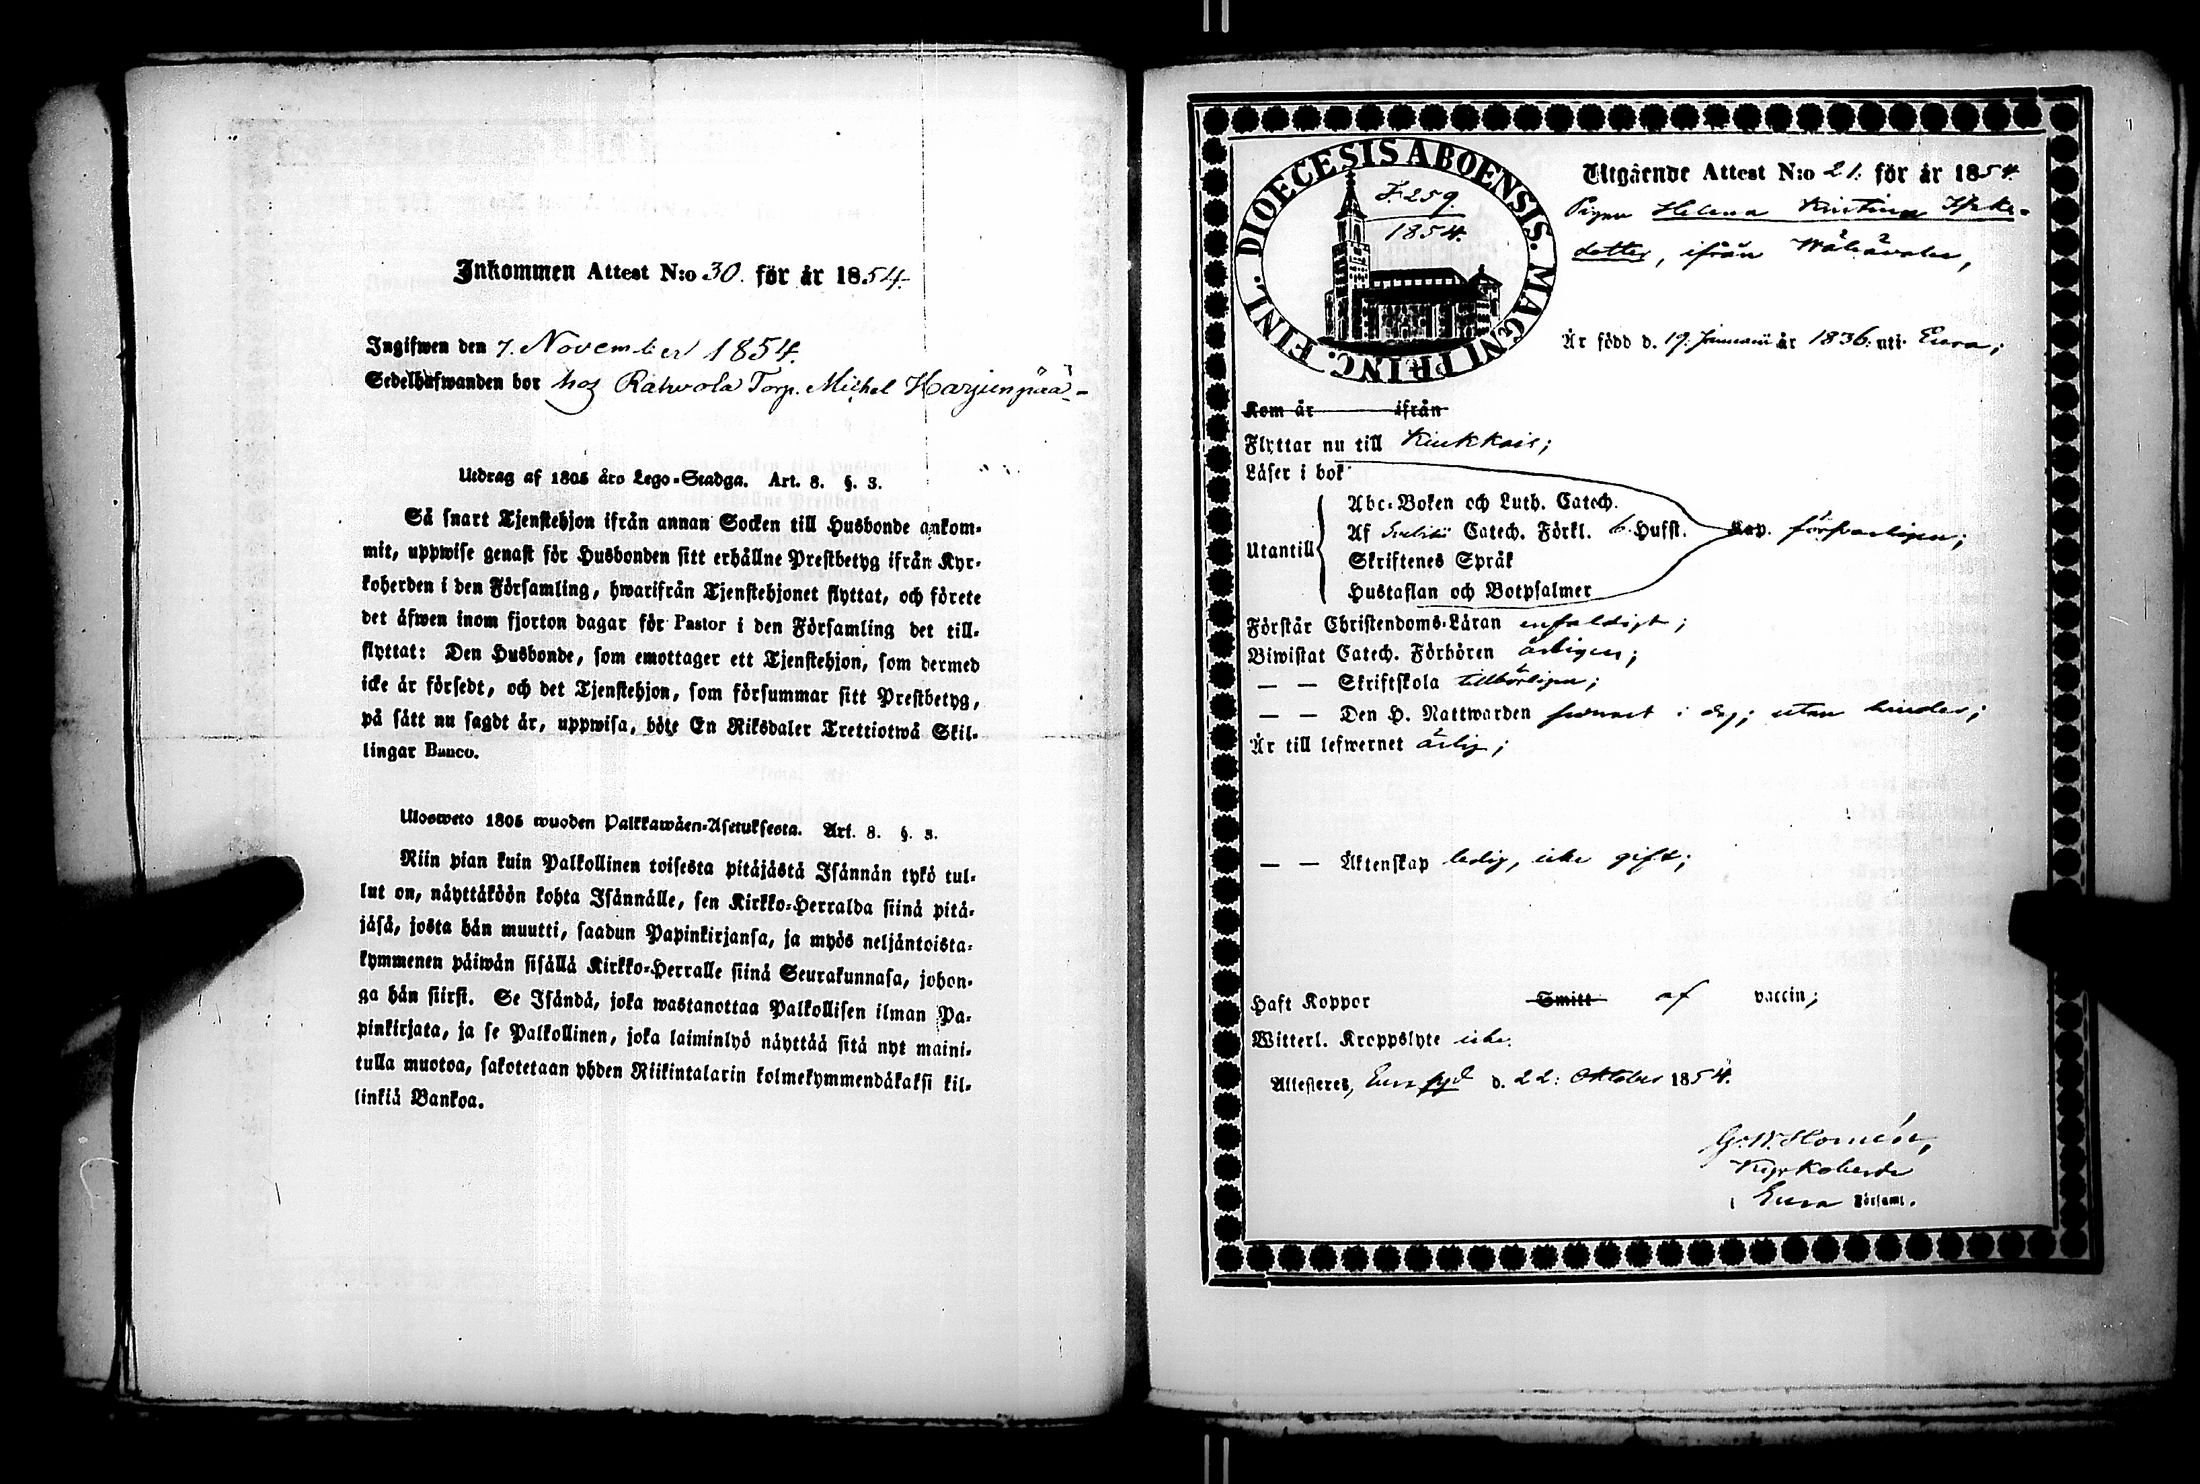 Inkommen Attest N:o 30. för år 1854.
Ingifwen den 7. November 1854.
Sedelhafwanden bor hos Rahvola Torp. Michel Harjunpää-
Utdrag af 1805 års Lego-Stadga. Art. 8. §. 3.
Så snart Tjenstehjon ifrån annan Socken till Husbonde ankom-
mit, uppwise genast för Husbonden sitt erhållne Prestbetyg ifrån Kyr-
koherden i den Församling, hwarifrån Tjenstehjonet flyttat, och förete
det äfwen inom fjorton dagar för Pastor i den Församling det till-
flyttat: Den Husbonde, som emottager ett Tjenstehjon, som dermed
icke är försedt, och det Tjenstehjon, som försummar sitt Prestbetyg,
på sätt nu sagdt är, uppwisa, böte En Riksdaler Trettiotwå Skil-
lingar Banco.
Ulosweto 1805 wuoden Palkkawäen-Asetuksesta. Art. 8. §. 3.
Niin pian kuin Palkollinen toisesta pitäjästä Isännän tykö tul-
lut on, näyttäköön kohta Isännälle, sen Kirkko-Herralda siinä pitä-
jäsä, josta hän muutti, saadun Papinkirjansa, ja myös neljäntoista-
kymmenen päiwän sisällä Kirkko-Herralle siinä Seurakunnasa, johon-
ga hän siirst. Se Isändä, joka wastanottaa Palkollisen ilman Pa-
pinkirjata, ja se Palkollinen, joka laiminlyö näyttää sitä nyt maini-
tulla muotoa, sakotetaan yhden Riikintalarin kolmekymmendäkaksi kil-
linkiä Bankoa.
DIOECESIS ABOENSIS. MAGNI PRINC. FINL.
F. 259.
1854.
Utgående Attest N:o 21. för år 1854.
Pigan Helena Kristina
dotter, ifrån
Är född d. 19. Januarii år 1836. uti Eura;
Kom år ifrån
Flyttar nu till Kiukkais;
Läser i bok
Utantill
Abc-Boken och Luth. Catech.
Af Svebilii Catech. Förkl. 6 Hufst. Kap. försvarligen;
Skriftenes Språk
Hustaflan och Botpsalmer
Förstår Christendoms-Läran enfaldigt;
Biwistat Catech. Förhören ärligen;
— — Skriftskola tillbörligen;
— — Den H. Nattwarden senast i dag; utan hinder;
Är till lefwernet ärlig;
— — Äktenskap ledig, icke gift;
Haft Koppor Smitt af vaccin;
Witterl. Kroppslyte icke.
Attesteres, Eura d. 22. Oktober 1854.
G. W. Homén,
Kyrkoherde
i Eura Församl.